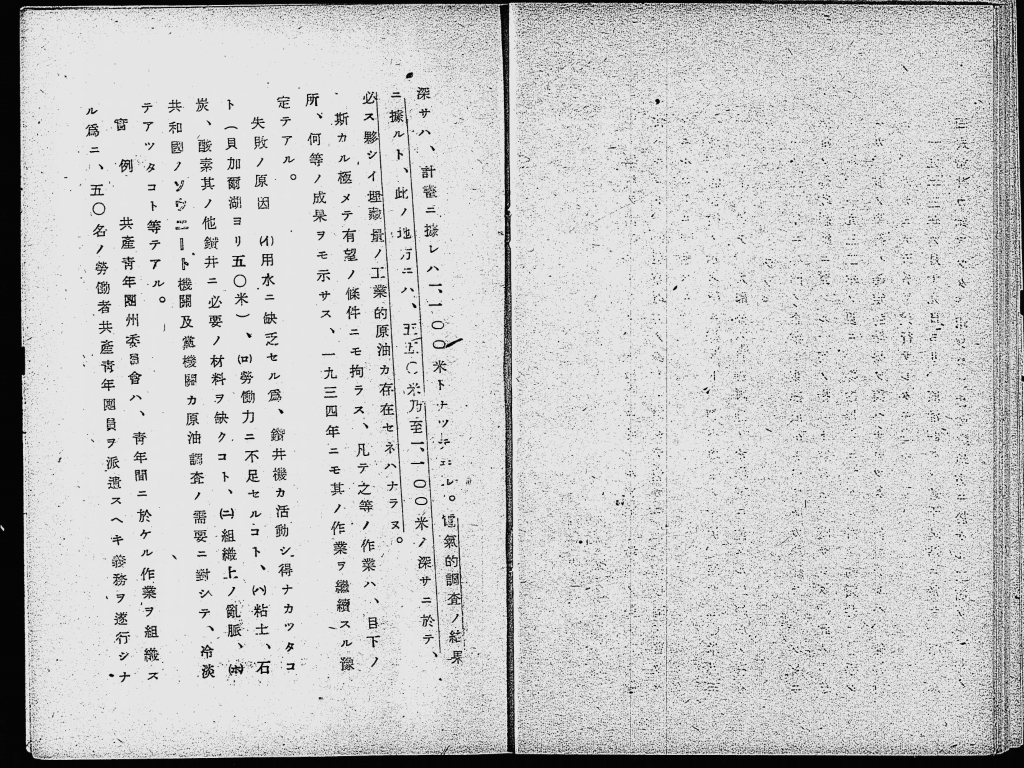 深サハ、計畫ニ據レハ一、一〇〇米トナツテヰル。電氣的調査ノ結果
ニ據ルト、此ノ地方ニハ、五五〇米乃至一、一〇〇米ノ深サニ於テ、
必ス夥シイ埋藏量ノ工業的原油カ存在セネハナラヌ。
斯カル極メテ有望ノ條件ニモ拘ラス、凡テ之等ノ作業ハ、目下ノ
所、何等ノ成果ヲモ示サス、一九三四年ニモ其ノ作業ヲ繼續スル豫
定テアル。
失敗ノ原因 (イ)用水ニ缺乏セル爲、鑽井機カ活動シ得ナカツタコ
ト(貝加爾湖ヨリ五〇米)、(ロ)勞働力ニ不足セルコト、(ハ)粘土、石
炭、酸素其ノ他鑽井ニ必要ノ材料ヲ缺クコト、(ニ)組織上ノ亂脈、(ホ)
共和國ノソウエート機關及黨機關カ原油調査ノ需要ニ對シテ、冷淡
テアツタコト等テアル。
實例 共產靑年團州委員會ハ、靑年間ニ於ケル作業ヲ組織ス
ル爲ニ、五〇名ノ勞働者共產靑年團員ヲ派遣スヘキ義務ヲ遂行シナ